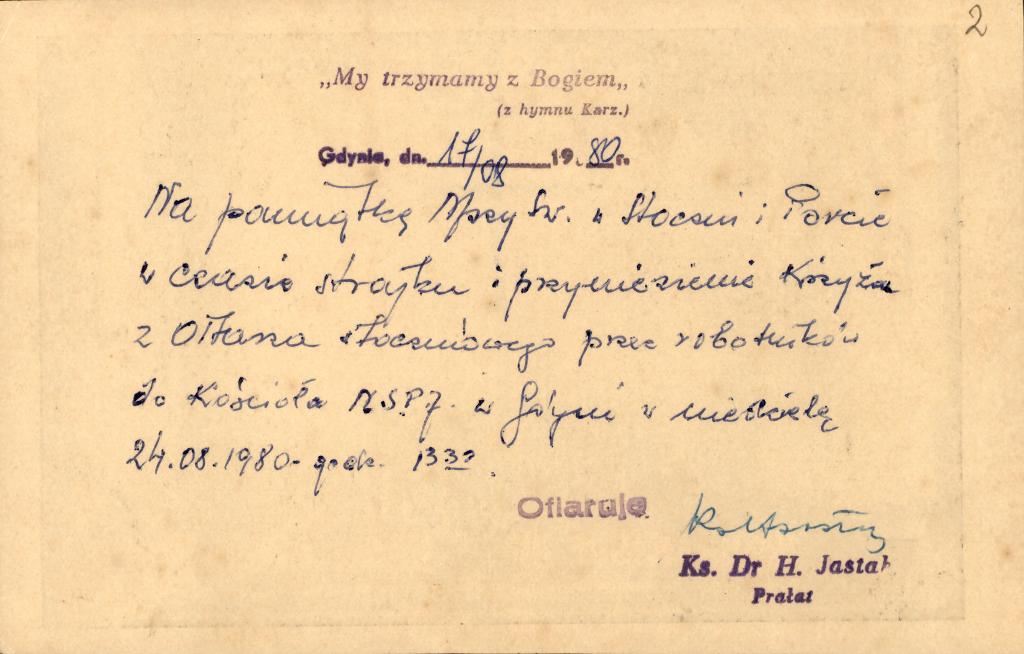 2
„My trzymamy z Bogiem„
(z hymnu Karz.)
Gdynia, dn. 17/08 19 80 r.
Na pamiątkę Mszy Św. w Stoczni i Porcie
w czasie strajku i przyniesienie Krzyża
z Ołtarza stoczniowego przez robotników
do Kościoła N.S.P.J. w Gdyni w niedzielę
24.08.1980 - godz. 13 30
Ofiaruje
Ks. Dr H. Jastak
Prałat